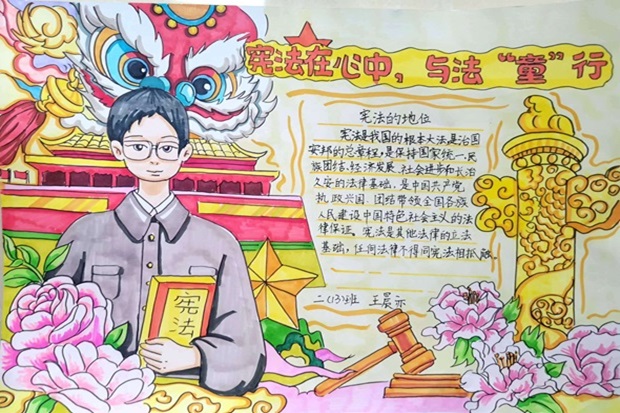 宪法在心中，与法“童”行
宪法的地位
宪法是我国的根本大法，是治国
安邦的总章程，是保持国家统一、民
族团结、经济发展、社会进步和长治
久安的法律基础，是中国共产党
执政兴国、团结带领全国各族
人民建设中国特色社会主义的法
律保证。宪法是其他法律的立法
基础，任何法律不得同宪法相抵触。
二（13）班 王晨亦
宪法